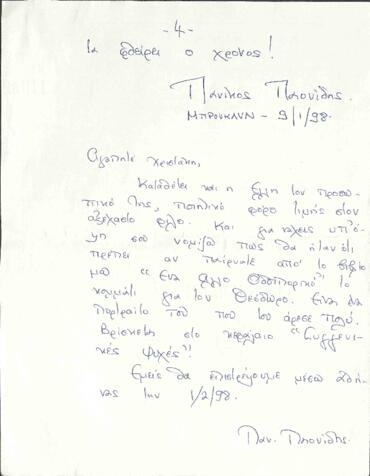 -4-
τα φθείρει ο χρόνος!
Πανίκος Παιονίδης.
ΜΠΡΟΥΚΛΥΝ - 9/1/98.
Αγαπητέ Χριστάκη,
Καταθέτει και η Έλλη τον προσω-
πικό της, ποιητικό φόρο τιμής στον
αξέχαστο φίλο. Και για νάχεις υπ' ό-
ψη σου νομίζω πως θα ήταν ότι
πρέπει αν παίρνατε από το βιβλίο
μου "Ένα άλλο Οδοιπορικό" το
κομμάτι για τον Θεόδωρο. Είναι ένα
πορτραίτο του που του άρεσε πολύ.
Βρίσκεται στο κεφάλαιο "Συγγενι-
κές ψυχές"!
Εμείς θα επιστρέψουμε μέσω Αθή-
νας την 1/2/98.
Παν. Παιονίδης.